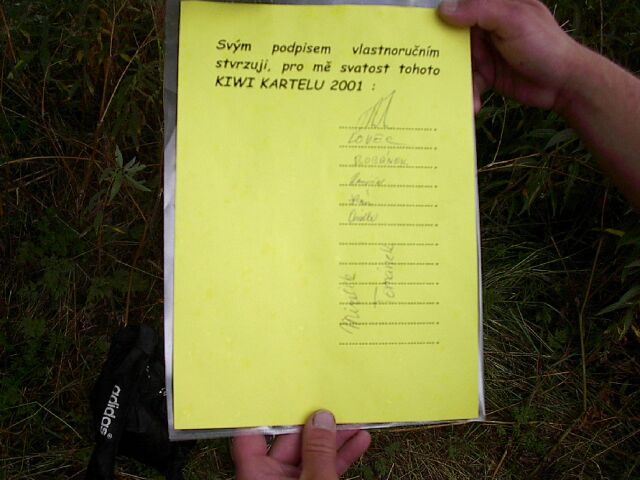 Svým podpisem vlastnoručním
stvrzuji, pro mě svatost tohoto
KIWI KARTELU 2001 :
LOVEC
ROBÁNEK
Tománek
adidas®